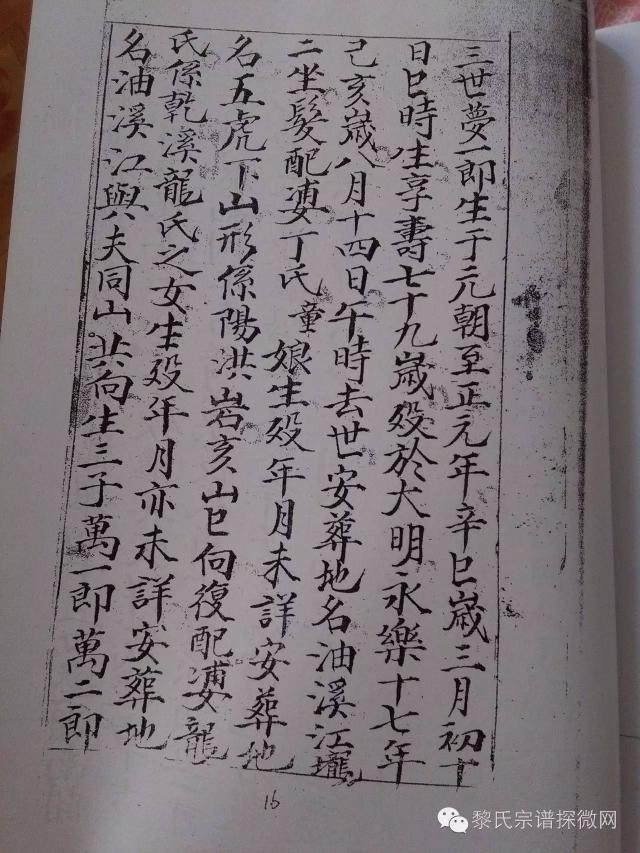 三世夢一郎生于元朝至正元年辛巳歲三月初十
日巳時生享壽七十九歲殁於大明永樂十七年
己亥歲八月十四日午時去世安葬地名油溪江壠
二坐髮配婆丁氏童娘生殁年月未詳安葬地
名五虎下山形係陽洪岩亥山巳向復配婆龍
氏係乾溪龍氏之女生殁年月亦未詳安葬地
名油溪江與夫同山共向生三子萬一郎萬二郎
16
黎氏宗谱探微网